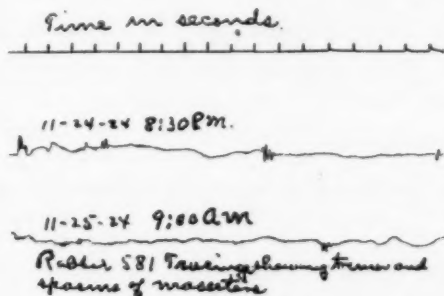 Time in seconds.
11-24-24 8:30 P.M.
11-25-24 9:00 a m
Rabbit 581 Tracing showing tremor and
spasms of masseters